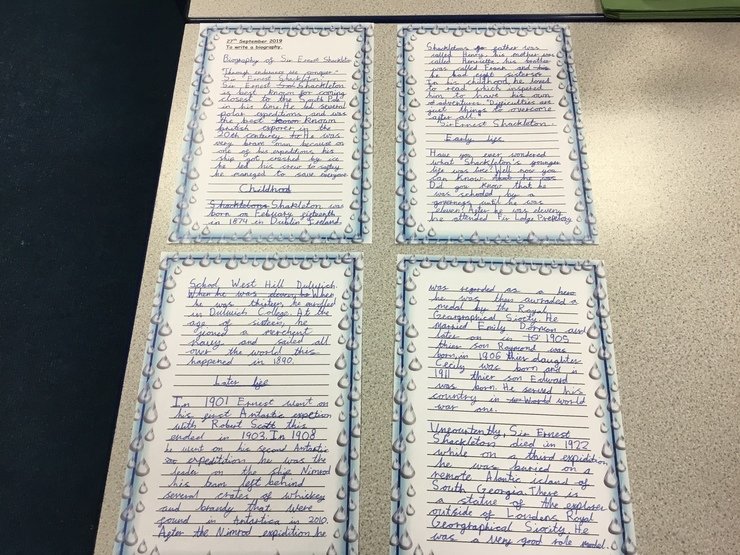 27th September 2019
To write a biography.
Biography of Sir Ernest Shackleton
"Through endurance we conquer."
Sir "Ernest Shackleton".
Sir Ernest Shackleton
is best known for coming
closest to the "South Pole"
in his time. He led several
polar expeditions and was
the best known
british exporer in the
20th contuary. He was
very brave man because on
one of his expeditions his
ship got crashed by ice
he led his crew to saftey
he managed to save everyone.
Childhood
Shackletons Shakleton was
born on Febuary fifteenth
in 1874 in Dublin Ireland.
Shackletons father was
called Henry, his mother was
called Henrietta, his brother
was called Frank and
he had eight sisters. In
his childhood, he loved
to read which inspired
him to have his own
adventures. "Difficulties are
just things to overcome
after all."
Sir Ernest Shackleton.
Early life
Have you ever wondered
what Shackleton's younger
life was like? Well now you
can know that he was
Did you know that he
was schooled by a
governess until he was
eleven. After he was eleven,
he attended Fir Lodge Preparay
School West Hill Dulwich.
When he was eleven, he When
he was thirteen, he enrolled
in Dulwich College. At the
age of sixteen, he
joined a merchent
Navy and sailed all
over the world this
happened in 1890.
Later life
In 1901 Ernest went on
his first Antartic expetion
with Robert Scott this
ended in 1903. In 1908
he went on his second Antartic
expeditition he was the
leader on the ship Nimrod
his team left behind
several crates of whiskey
and brandy that were
found in Antartica in 2010.
After the Nimrod expidition he
was regarded as a hero
he was then awraded a
medal by the Royal
Geographical Siocity. He
married Emily Dorman and
later on in 1905
thier son Raymond was
born, in 1906 thier daughter
Cecily was born and in
1911 thier son Edward
was born. He served his
country in World world
war one.
Unfourtently, Sir Ernest
Shackleton died in 1922
while on a third expidition
he was buried on a
remote Alantic island of
South Georgia. There is
a statue of the explorer
outside of Londons Royal
Georgraphical Siocity. He
was a very good role model.